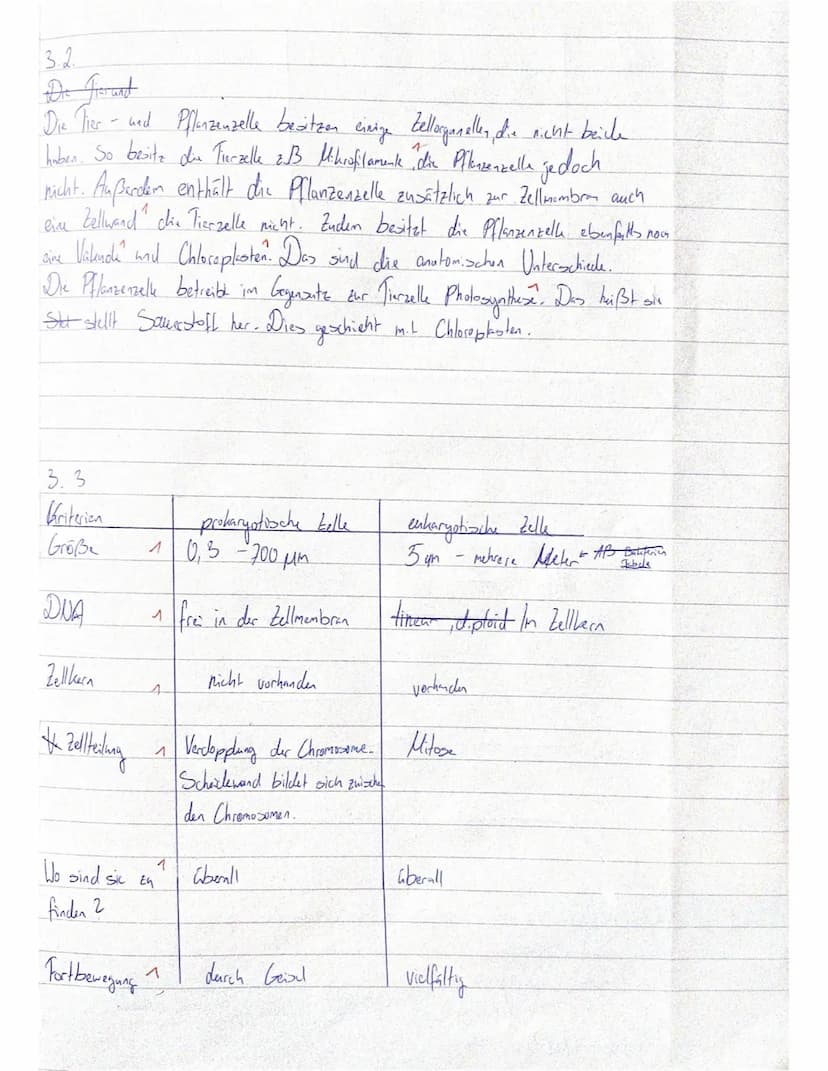 3.2.
Die Tier und
Die Tier- und Pflanzenzelle besitzen einige Zellorganellen, die nicht beide
haben. So besitz die Tierzelle zB Mikrofilamente, die Pflanzenzelle jedoch
nicht. Außerdem enthält die Pflanzenzelle zusätzlich zur Zellmembran auch
eine Zellwand 1 die Tierzelle nicht. Zudem besitzt die Pflanzenzelle ebenfalls noch
eine 1 und Chloroplasten 1. Das sind die anatomischen Unterschiede.
Die Pflanzenzelle betreibt im Gegensatz zur Tierzelle Photosynthese 1. Das heißt sie
stellt Sauerstoff her. Dies geschieht mit Chloroplasten.
3.3
Kriterien prokaryotische Zelle eukaryotische Zelle
Größe 1 0,3 - 700 µm 5 µm - mehrere Meter AB Tabelle
DNA 1 frei in der Zellmembran linear, diploid Im Zellkern
Zellkern 1 nicht vorhanden vorhanden
Zellteilung 1 Verdopplung der Chromosome. Mitose
Scheidewand bildet sich zwischen
den Chromosomen.
Wo sind sie zu 1 überall überall
finden?
Fortbewegung 1 durch Geisel vielfältig